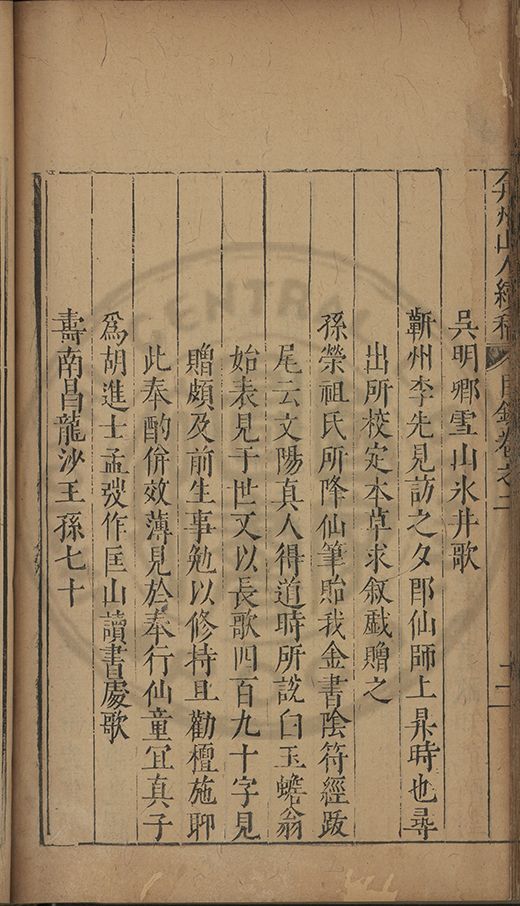 弇州山人續稿 目錄卷之二 十二
吳明卿雪山氷井歌
蘄州李先見訪之夕即仙師上昇時也尋
出所校定本草求叙戱贈之
孫榮祖氏所降仙筆貽我金書陰符經跋
尾云文陽真人得道時所説白玉蟾翁
始表見于世又以長歌四百九十字見
贈頗及前生事勉以修持且勸檀施聊
此奉酌併效薄見於奉行仙童冝真子
爲胡進士孟弢作匡山讀書處歌
壽南昌龍沙王孫七十
CENTRAL